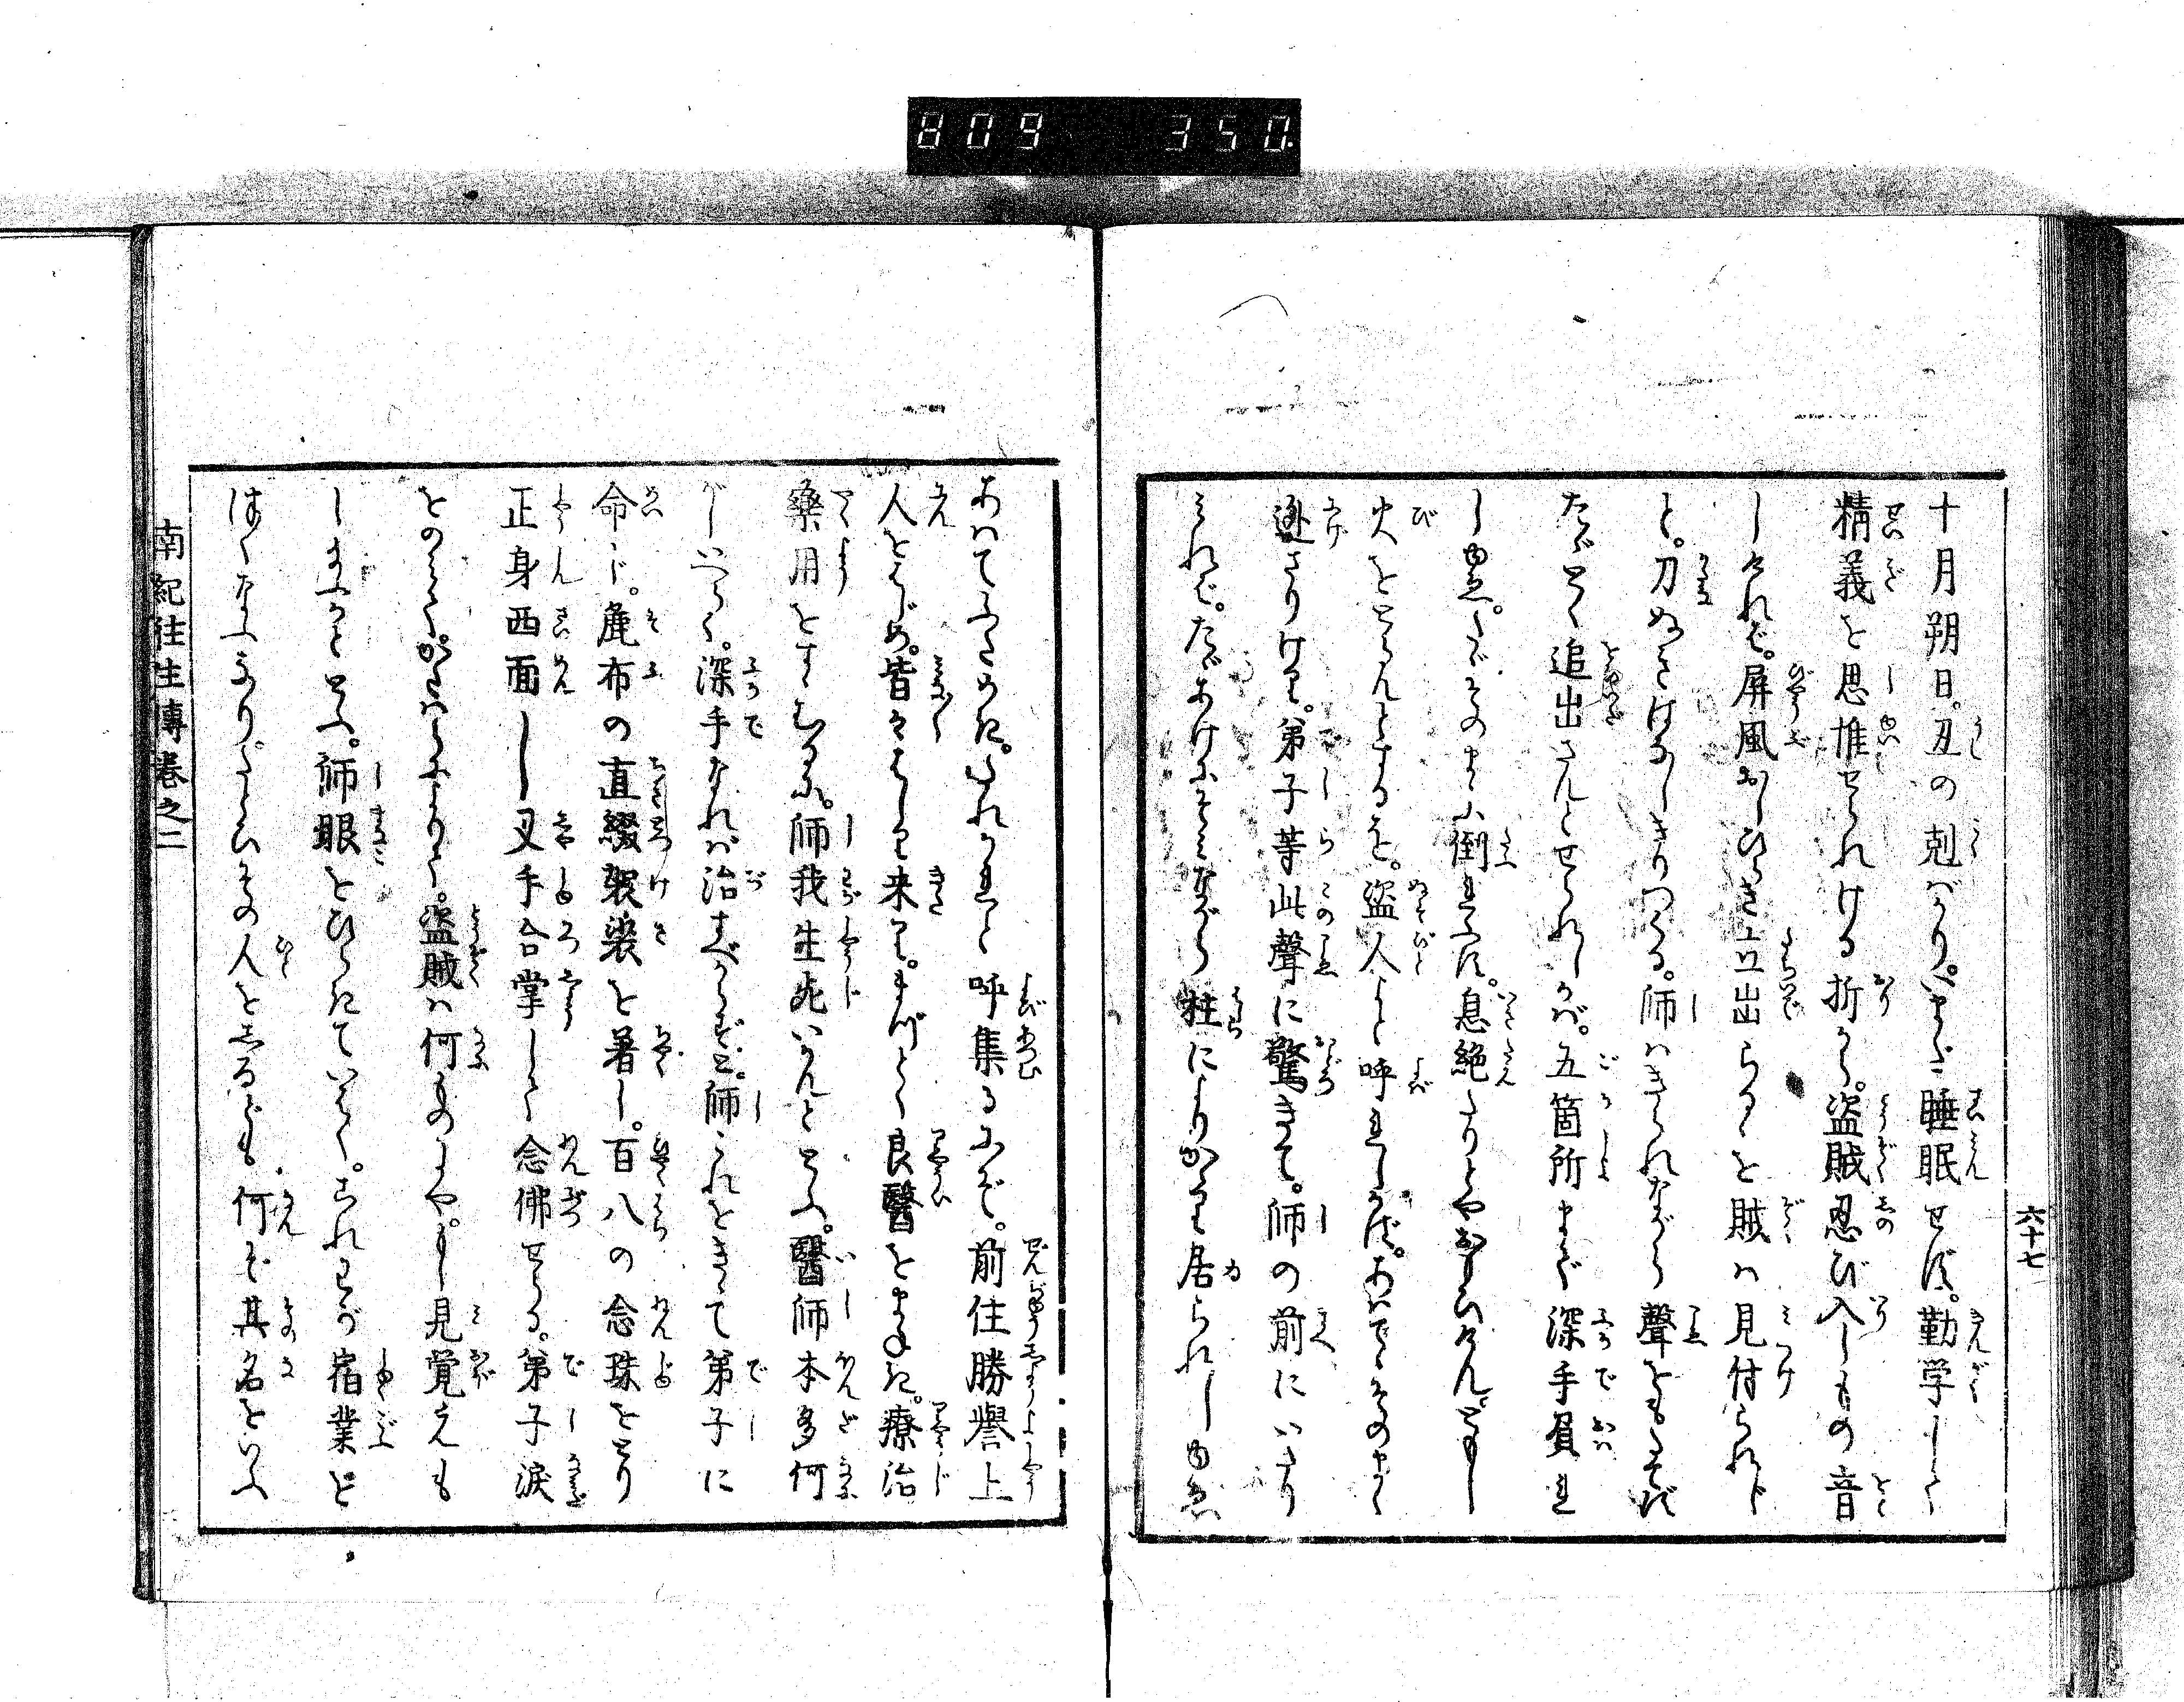 809 350
六十七
十月朔日。丑の剋ばかり。いまだ睡眠せず。勤学して
精義を思惟せられける折から。盗賊忍び入しもの音
しければ。屏風おしひらき立出らるゝを賊は見付られじ
と。刀ぬきはなしきりつくる。師はきられながら聲をもたてず
たゞとく追出さんとせられしが。五箇所まで深手負れ
しゆゑ。つゐにそのまゝ倒れふす。息絶たりとやおもひけん。ともし
火をとらんとするを。盗人よと呼れしかば。あはてゝそのまゝ
逃さりけり。弟子等此聲に驚きて。師の前にいたり
みれば。たゞあけにそみながら柱によりかゝり居られしゆゑ
あはてふためき。これかれと呼集るほどに。前住勝譽上
人をはじめ。皆々はしり来り。まづとく良醫をまねき。療治
藥用をすゝむるに。師我生死いかんととふ。醫師本多何
がしいはく。深手なれば治すべからずと。師これをきゝて弟子に
命じ。麁布の直綴袈裟を著し。百八の念珠をとり
正身西面し叉手合掌して念佛せらる。弟子涙
をのごひて。かゝるしわざにあひ。盗賊は何ものぞや。もし見覚えも
しまふかととふ。師眼をひらきていはく。これわが宿業と
はいひながらなり。たとひその人をしるとも何ぞ其名をいふ
南紀往生傳巻之二